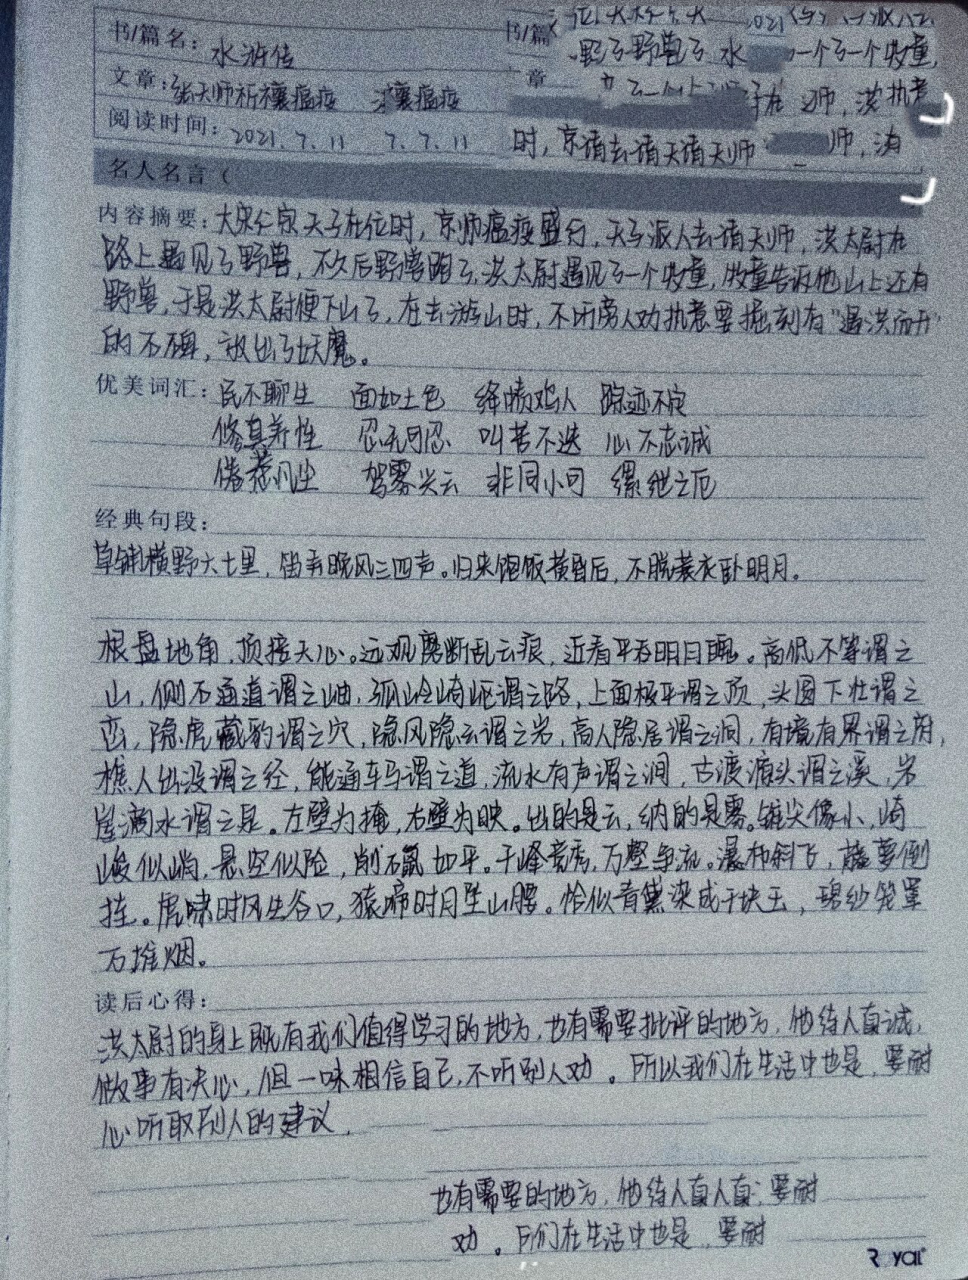 书/篇名：水浒传
书/篇
2021
野了野兽了 水 一个了一个牧童，
文章：张天师祈禳瘟疫 禳瘟疫
章
师，洪执意
阅读时间：2021.7.11 7.7.11
时，京请去请天请天师 师，洪
名人名言（
内容摘要：大宋仁宗天子在位时，京师瘟疫盛行，天子派人去请天师，洪太尉在
路上遇见了野兽，不久后野兽跑了，洪太尉遇见了一个牧童，牧童告诉他山上还有
野兽，于是洪太尉便下山了，在去游山时，不听旁人劝执意要掘刻有“遇洪而开”
的石碑，放出了妖魔。
优美词汇：民不聊生 面如土色 绛帻鸡人 踪迹不定
修真养性 忍无可忍 叫苦不迭 心不志诚
倦惹风尘 驾雾兴云 非同小可 缧绁之厄
经典句段：
草铺横野六七里，笛弄晚风三四声。归来饱饭黄昏后，不脱蓑衣卧明月。
根盘地角，顶接天心。远观磨断乱云痕，近看平吞明月魄。高低不等谓之
山，侧石通道谓之岫，孤岭崎岖谓之路，上面极平谓之顶，头圆下壮谓之
峦，隐虎藏豹谓之穴，隐风隐云谓之岩，高人隐居谓之洞，有境有界谓之府，
樵人出没谓之径，能通车马谓之道，流水有声谓之涧，古渡源头谓之溪，岩
崖滴水谓之泉。左壁为掩，右壁为映。出的是云，纳的是雾。锥尖像小，崎
峻似峭，悬空似险，削𥗬如平。千峰竞秀，万壑争流。瀑布斜飞，藤萝倒
挂。虎啸时风生谷口，猿啼时月坠山腰。恰似青黛染成千块玉，碧纱笼罩
万堆烟。
读后心得：
洪太尉的身上既有我们值得学习的地方，也有需要批评的地方，他待人真诚，
做事有决心，但一味相信自己，不听别人劝。所以我们在生活中也是，要耐
心听取别人的建议，
也有需要的地方，他待人真人真，要耐
劝。们在生活中也是，要耐
Royal